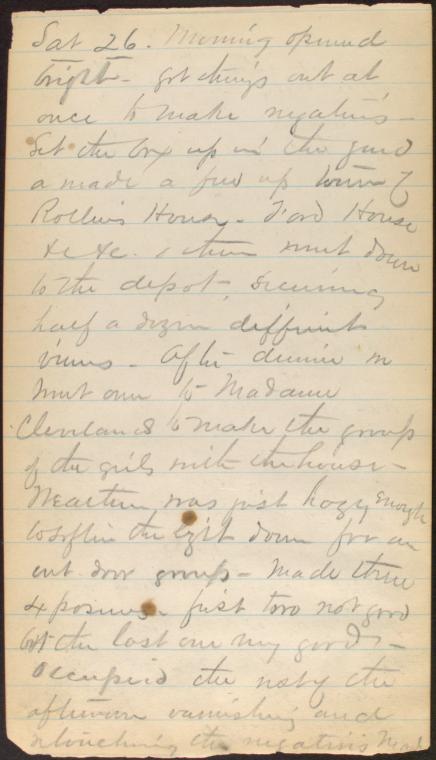 Sat 26. Morning opened
bright - got things out at
once to make negatives -
Set the box up in the yard
a made a few up town of
Rollins House - Ford House
&c &c. & then went down
to the depot - securing
half a dozen different
views - After dinner
went over to Madame
Clevelands to make the group
of the girls with the house -
Weather was just hazy enough
to soften the light down for an
out door group - Made three
exposures first two not good
but the last one very good -
Occupied the rest of the
afternoon varnishing and
retouching the negatives